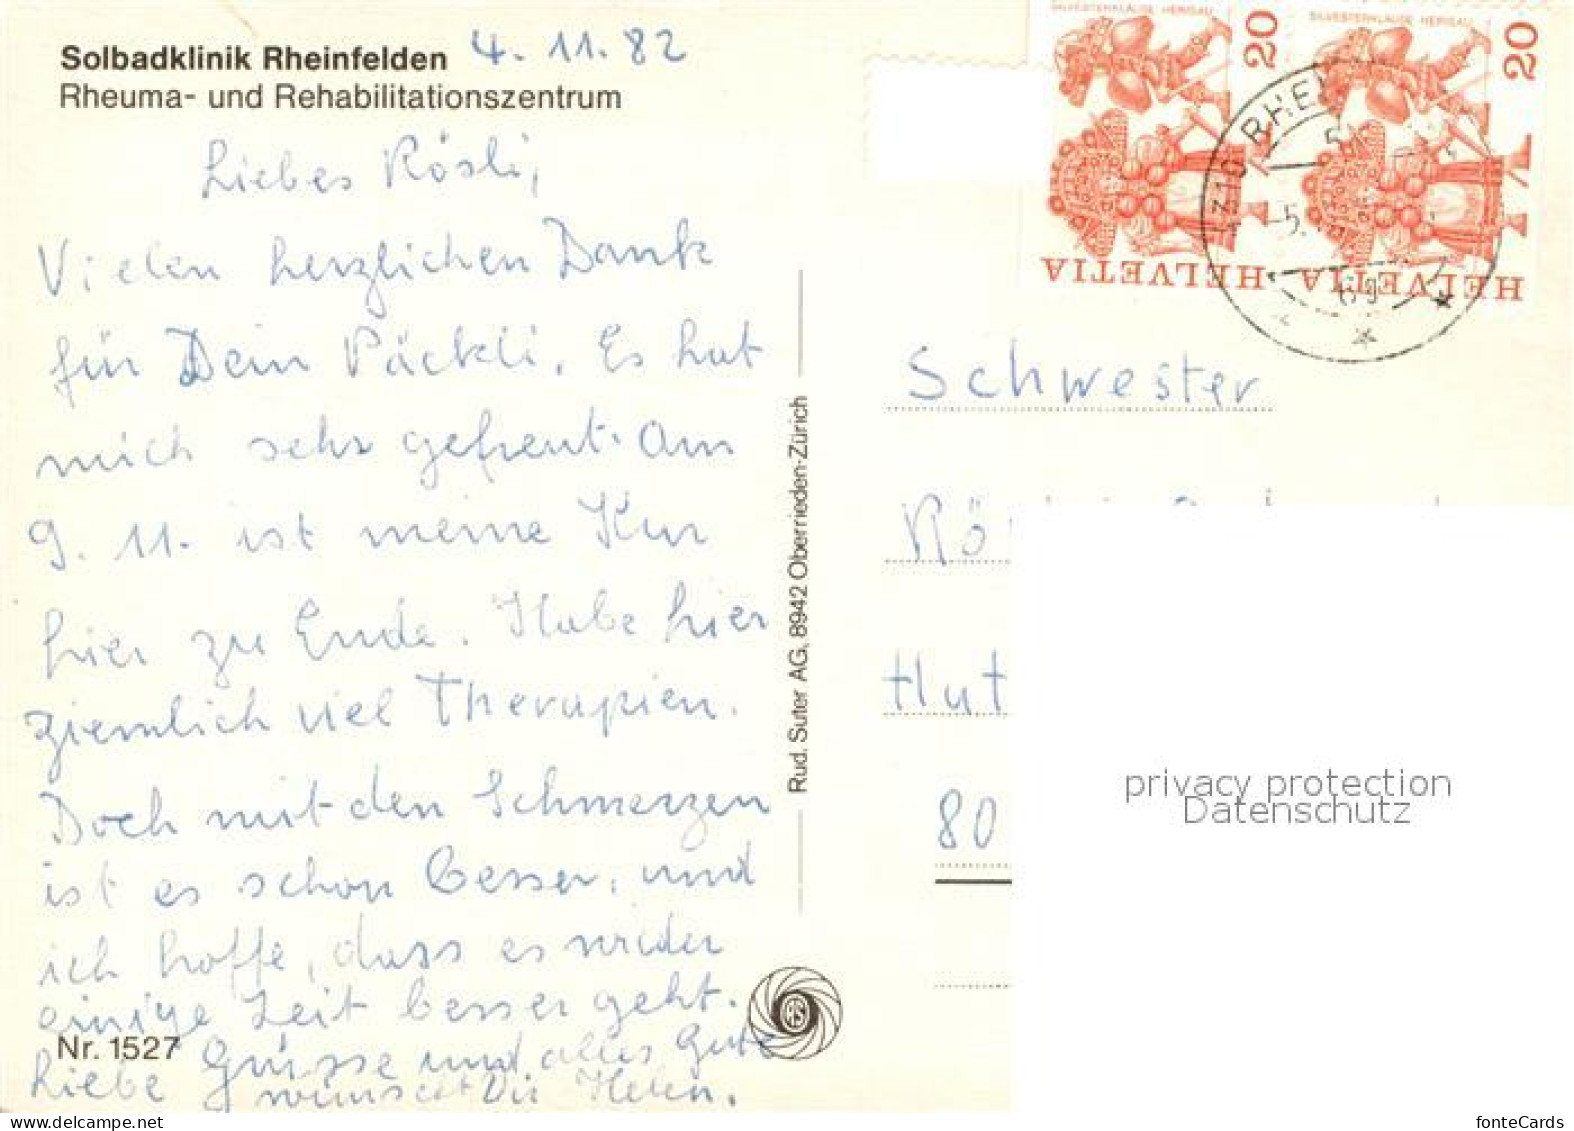 Solbadklinik Rheinfelden 4. 11. 82
Rheuma- und Rehabilitationszentrum
Liebes Rösli,
Vielen herzlichen Dank
für Dein Päckli. Es hat
mich sehr gefreut. Am
9. 11. ist meine Kur
hier zu Ende. Habe hier
ziemlich viel Therapien.
Doch mit den Schmerzen
ist es schon besser, und
ich hoffe, dass es wieder
einige Zeit besser geht.
Nr. 1527
Liebe Grüsse und alles Gute
wünscht Dir Helen.
Rud. Suter AG, 8942 Oberrieden-Zürich
SILVESTERKLÄUSE HERISAU
20
HELVETIA
SILVESTERKLÄUSE HERISAU
20
HELVETIA
Schwester
Rö
Hut
80
privacy protection
Datenschutz
fonteCards